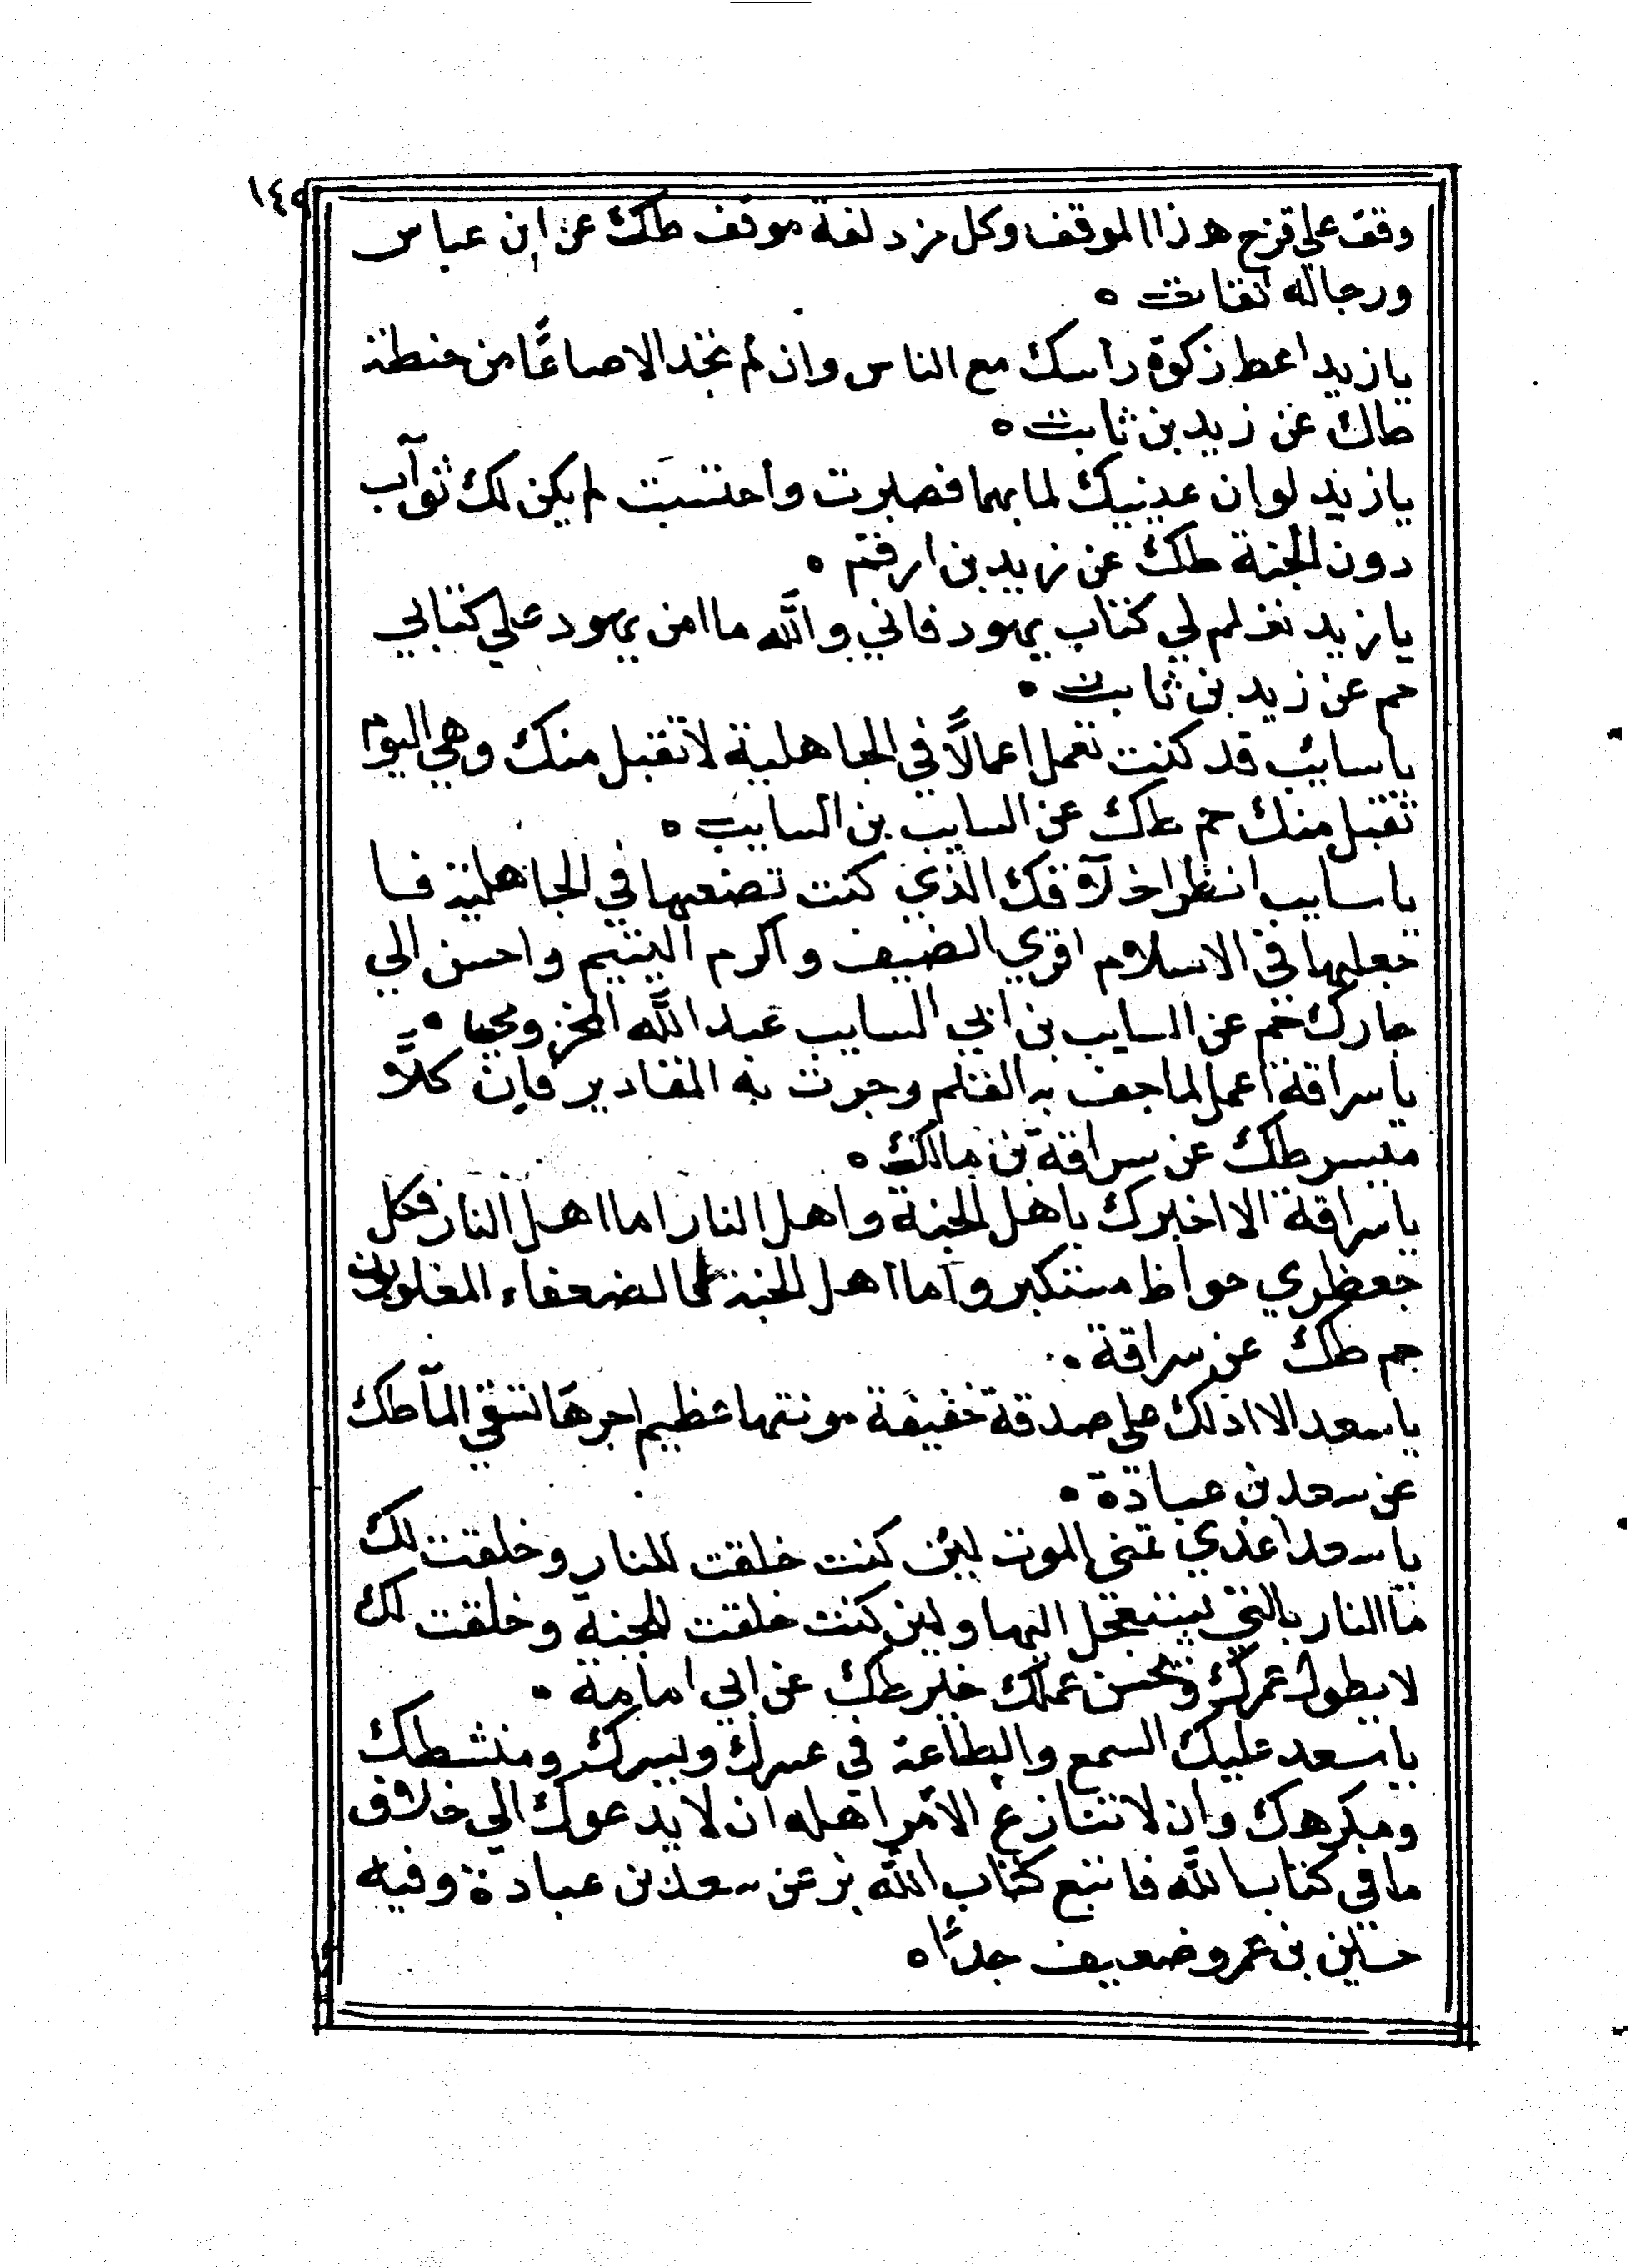 ١٤٥
وقف على قزح هذا الموقف وكل مزدلفة موقف طك عن ابن عباس
ورجاله ثقات ه
يا زيد اعط زكوة راسك مع الناس وان لم تجد الا صاعًا من حنطة
طك عن زيد بن ثابت ه
يا زيد لو ان عينيك لما بهما فصبرت واحتسبت لم يكن لك ثواب
دون الجنة طك عن زيد بن ارقم ه
يا زيد تعلم لي كتاب يهود فاني والله ما امن يهود علي كتابي
حم عن زيد بن ثابت ه
يا سائب قد كنت تعمل اعمالًا في الجاهلية لا تقبل منك وهي اليوم
تقبل منك حم طك عن السايب بن السايب ه
يا سايب انظر اخلاقك الذي كنت تصنعها في الجاهلية فا
جعلها في الاسلام اقري الضيف واكرم اليتيم واحسن الي
جارك حم عن السايب بن ابي السايب عبد الله المخزومي ه
يا سراقة اعمل لما جف به القلم وجرت به المقادير فان كلًا
ميسر طك عن سراقة بن مالك ه
يا سراقة الا اخبرك باهل الجنة واهل النار اما اهل النار فكل
جعظري جواظ مستكبر واما اهل الجنة فالضعفاء المغلوبون
حم طك عن سراقة ه
يا سعد الا ادلك علي صدقة خفيفة مونتها عظيم اجرها تسقي الما طك
عن سعد بن عبادة ه
يا سعد اعندي تمنى الموت لين كنت خلقت للنار وخلقت لك
ما النار بالتي يستعجل اليها ولين كنت خلقت للجنة وخلقت لك
لا يطول عمرك ويحسن عملك خير طك عن ابي امامة ه
يا سعد عليك السمع والطاعة في عسرك ويسرك ومنشطك
ومكرهك وان لا تنازع الامر اهله ان لا يدعوك الي خلاف
ما في كتاب الله فاتبع كتاب الله بز عن سعد بن عبادة وفيه
حسين بن عمرو ضعيف جدًا ه